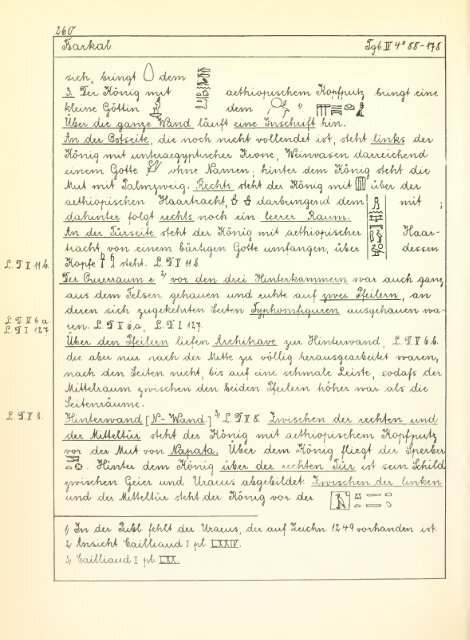 260
Barkal. Tgb IV 4° 88-178
sich, bringt dem
3. Der König mit aethiopischem Kopfputz bringt eine
kleine Göttin dem "
Über die ganze Wand läuft eine Inschrift hin.
In der Ostseite, die noch nicht vollendet ist, steht links der
König mit unteraegyptischer Krone, Weinvasen darreichend
einem Gotte ohne Namen, hinter dem König steht die
Mut mit Palmzweig. Rechts steht der König mit über der
aethiopischen Haartracht, darbringend dem mit ;
dahinter folgt rechts noch ein leerer Raum.
An der Türseite steht der König mit aethiopischer Haar-
tracht, von einem bärtigen Gotte umfangen, über dessen
L. D V 11 b. Kopfe steht. L. D V 11 b
Der Querraum e 2) vor den drei Hinterkammern war auch ganz
aus dem Felsen gehauen und ruhte auf zwei Pfeilern, an
L. D V 6 a deren sich zugekehrten Seiten Typhonfiguren ausgehauen wa-
L D I 127 ren L. D V 6 a, L. D I 127.
Über den Pfeilern liefen Architrave zur Hinterwand, L. D V 6 b.
die aber nur nach der Mitte zu völlig herausgearbeitet waren,
nach den Seiten nicht, bis auf eine schmale Leiste, sodass der
Mittelraum zwischen den beiden Pfeilern höher war als die
Seitenräume.
L. D V 8. Hinterwand [N-Wand] 3) L. D V 8. Zwischen der rechten und
der Mitteltür steht der König mit aethiopischem Kopfputz
vor der Mut von Napata. Über dem König fliegt der Sperber
. Hinter dem König über der rechten Tür ist sein Schild
zwischen Geier und Uraeus abgebildet. Zwischen der linken
und der Mitteltür steht der König vor der
1) In der Publ. fehlt der Uraeus, der auf Zeichn 1249 vorhanden ist.
2) Ansicht Cailliaud I pl. LXXIV.
3) Cailliaud I pl. LXX.